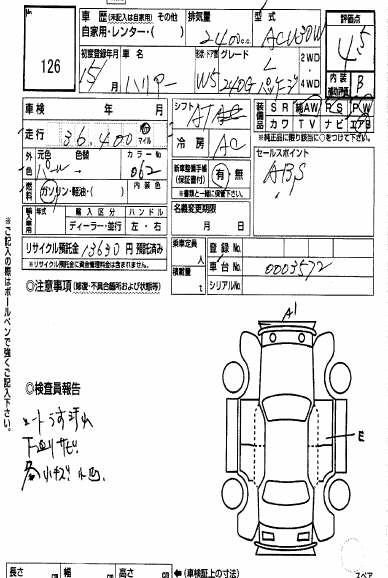 126
車歴(未記入は自家用) その他
自家用・レンター・( )
排気量
2400cc
型式
ACU30W
評価点
4.5
初度登録年月
15/
車名
ハリアー
形状・ドア数
W5
グレード
L
240G
2WD
4WD
内装
補助評価
B
車検 年 月
シフト
AT
走行 36,400 マイル
冷房
AC
装備品
SR 純AW PS PW
カワ TV ナビ エアB
※純正品に限り該当に○をつけて下さい。
外色
元色
パール
色替
カラーNo
062
燃料
ガソリン・軽油・( )
内装色
新車整備手帳
(保証書付)
有・無
※書類と一緒に保管して下さい。
セールスポイント
ABS
輸入車用
年式
輸入区分
ディーラー・並行
ハンドル
左・右
名義変更期限
月 日
リサイクル預託金 13630 円 預託済み
※リサイクル預託金に資金管理料金は含まれません。
乗車定員
人
積載量
t
登録No.
車台No.
0003572
シリアルNo.
◎注意事項 (修復・不具合個所および状態等)
※ご記入の際はボールペンで強くご記入下さい。
A1
E
◎検査員報告
シートうす汚れ
下回りサビ
各小キズ 小凹
長さ
幅
高さ
◀(車検証上の寸法)
スペア